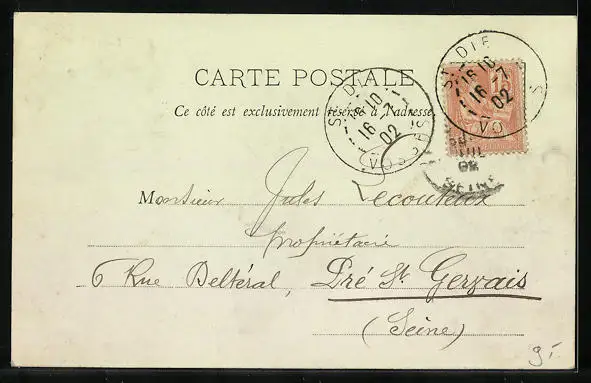 CARTE POSTALE
Ce côté est exclusivement réservé à l'adresse
ST DIÉ
16 10
16 -7
02
VOSGES
ST DIÉ
16 10
16 -7
02
VO S
02
SEINE
Monsieur Jules Lecouteux
propriétaire
6 Rue Deltéral, Pré St. Gervais
(Seine)